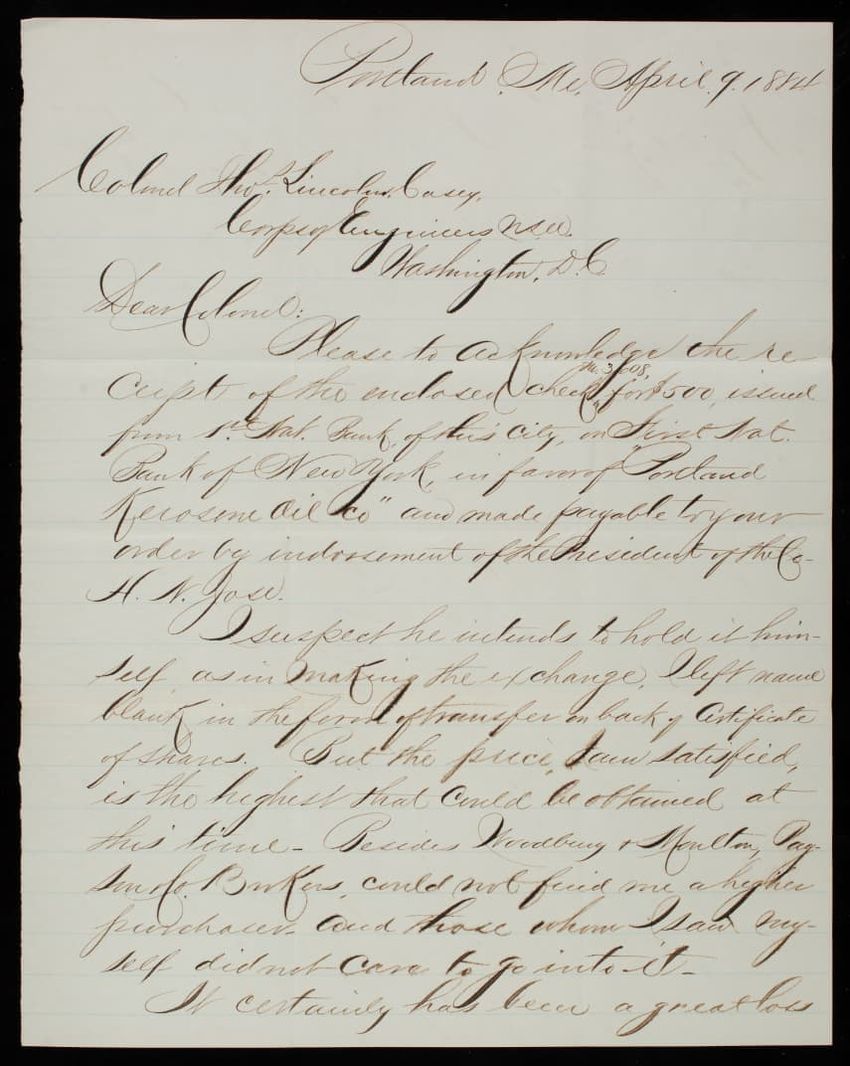 Portland, Me. April 9. 1884
Colonel Thos. Lincoln Casey,
Corps of Engineers U.S.A.
Washington, D.C.
Dear Colonel:
Please to acknowledge the re
ceipt of the enclosed check for $500, issued
from 1st Nat. Bank, of this City, on "First Nat.
Bank of New York, in favor of "Portland
Kerosene Oil Co" and made payable to your
order by indorsement of the President of the Co-
H. N. Jose.
I suspect he intends to hold it him-
self, as in making the exchange, I left name
blank in the form of transfer on back of Certificate
of shares. But the price, I am satisfied,
is the highest that could be obtained at
this time - Besides Woodbury & Moulton, Pay-
son Co. Brokers, could not find me a higher
purchaser. and those whom I saw my-
self did not care to go into it -
It certainly has been a great loss